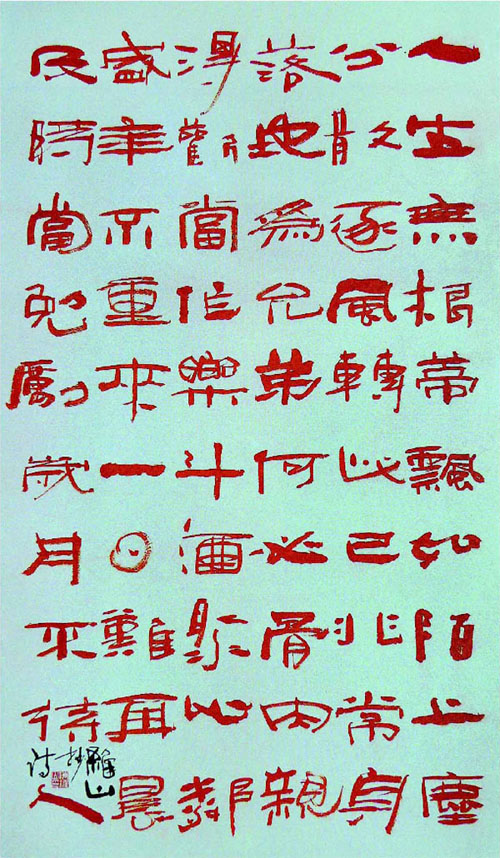 人生無根蒂飄如陌上塵
分散逐風轉此已非常身
落地爲兄弟何必骨肉親
得歡當作樂斗酒聚比鄰
盛年不重來一日難再晨
及時當勉勵歲月不待人